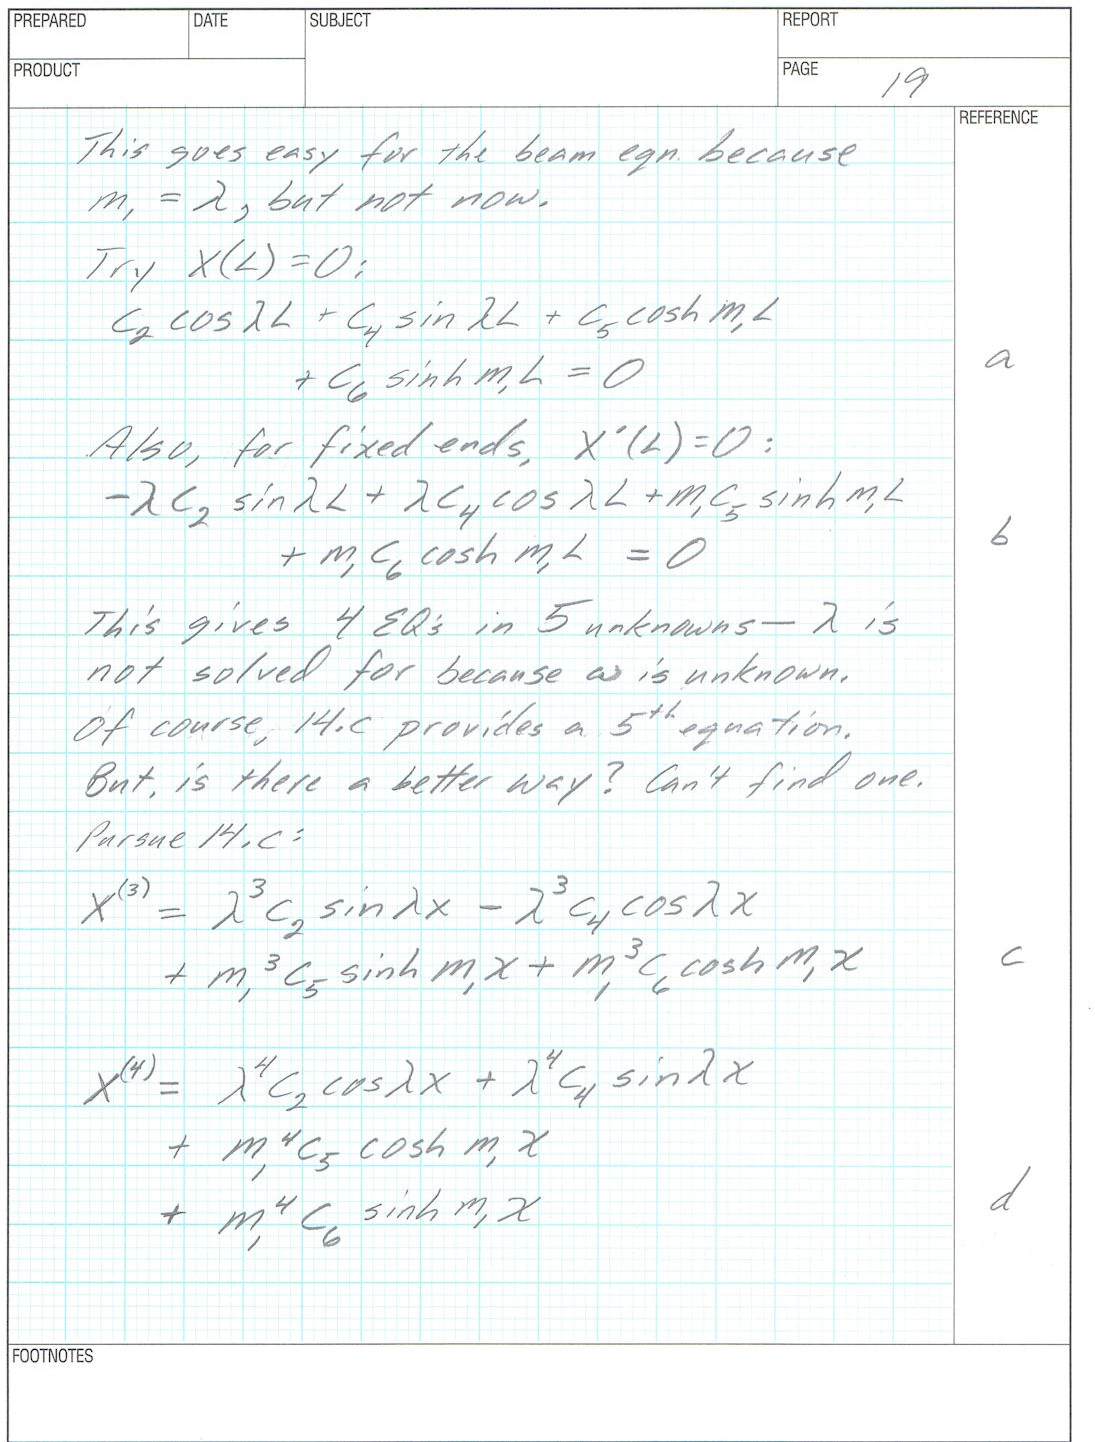 PREPARED
DATE
SUBJECT
REPORT
PRODUCT
PAGE 19
REFERENCE
This goes easy for the beam eqn. because
m₁ = λ, but not now.
Try X(L) = 0:
C₂ cos λL + C₄ sin λL + C₅ cosh m₁L
+ C₆ sinh m₁L = 0
a
Also, for fixed ends, X'(L) = 0:
-λC₂ sin λL + λC₄ cos λL + m₁C₅ sinh m₁L
+ m₁C₆ cosh m₁L = 0
b
This gives 4 EQ's in 5 unknowns — λ is
not solved for because ω is unknown.
Of course, 14.c provides a 5th equation.
But, is there a better way? Can't find one.
Pursue 14.c:
X⁽³⁾ = λ³C₂ sin λx - λ³C₄ cos λx
+ m₁³C₅ sinh m₁x + m₁³C₆ cosh m₁x
c
X⁽⁴⁾ = λ⁴C₂ cos λx + λ⁴C₄ sin λx
+ m₁⁴C₅ cosh m₁x
+ m₁⁴C₆ sinh m₁x
d
FOOTNOTES